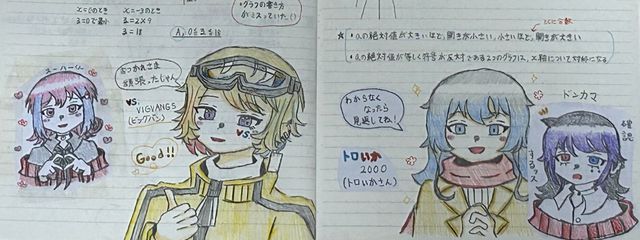 x=0のとき
x=-3のとき
y=0で最小
y=2×9
y=18
A, 0≦y≦18
・グラフの書き方
がミスっていた()
ユーハーリー
おつかれさま
頑張ったじゃん
VS.
VIGVANGS
(ビッグバン)
Good!!
VS
とにかく分数
★・aの絶対値が大きいほど、開きが小さい。小さいほど、開きが大きい
・aの絶対値が等しく符号が反対である2つのグラフは、x軸について対称になる
わからなく
なったら
見返してね!
トロいか
2000
(トロいかさん)
ドンカマ
解説
するッス